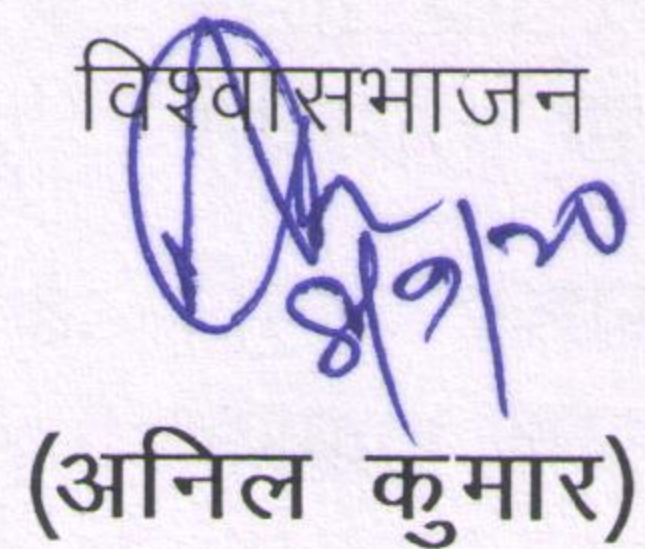 विश्वासभाजन
8/9/20
(अनिल कुमार)